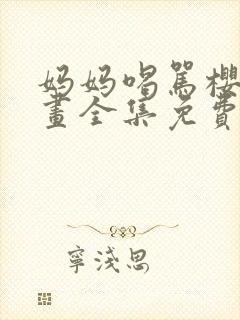 妈妈喝骂樱
畫全集免費
寧淺思